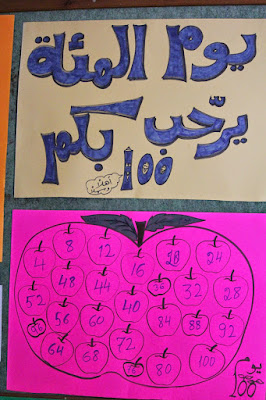 يوم المئة
يرحّب بكم
أهلاً وسهلاً
100
4 8 12 16 20 24
52 48 44 40 36 32 28
96 56 60 84 88 92
64 68 72 76 80 100
يوم
100